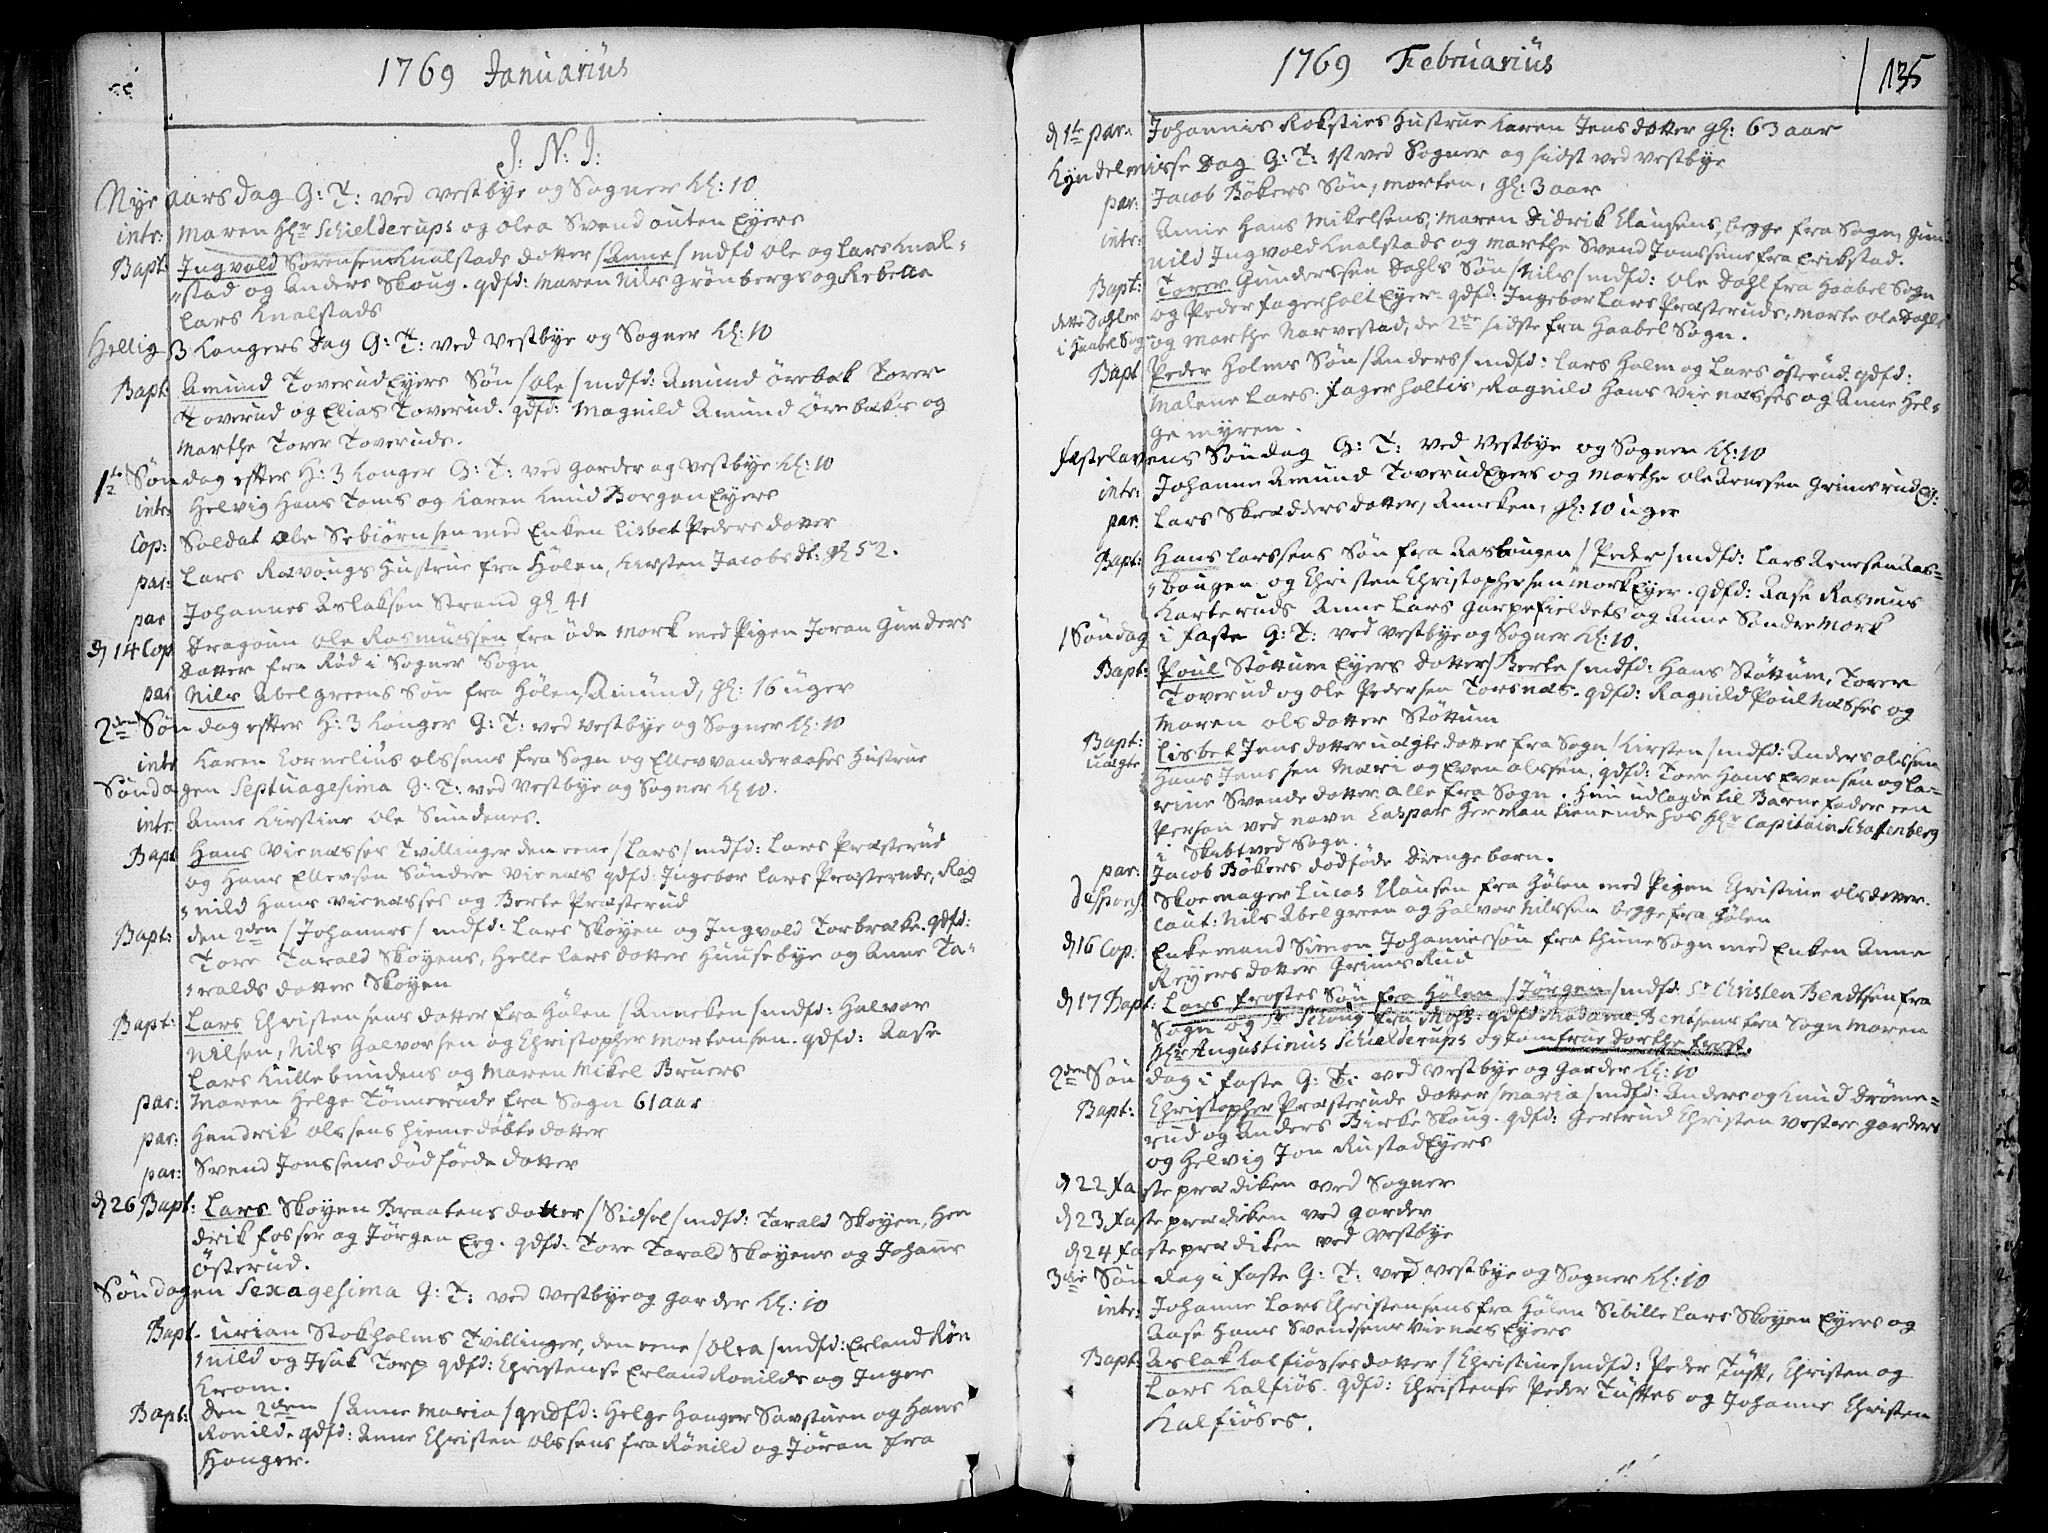 1769 Januarius
J: N: J:
Nye aars Dag G: T: ved Vestbye og Sogner Kl: 10
intr: Maren Hr Schielderups og Olea Svend outen Eyers
Bapt: Ingvold Sørensen Knalstads dotter /Anne/ mdfd Ole og Lars Knal-
stad og Anders Skoug. qdfd: Maren Nils Grønbergs og Rebecca
Lars Knalstads
Hellig 3 Kongers Dag G: T: ved Vestbye og Sogner Kl: 10
Bapt: Amund Toverud Eyers Søn /Ole/ mdfd: Amund Ørebek Torer
Toverud og Elias Toverud. qdfd: Magnild Amund Ørebekes og
Marthe Torer Toveruds.
1te Søndag efter H: 3 Konger G: T: ved Garder og Vestbye Kl: 10
intr: Helvig Hans Toms og Karen Knud Borgen Eyers
Cop: Soldat Ole Sebiørnsen med Enken Lisbet Peders dotter
par: Lars Ravougs Hustrue fra Hølen, Kirsten Jacobs dt. gl 52.
par Johannes Aslaksen Strand gl 41
d 14 Cop Dragoun Ole Rasmussen fra Øde Mork med Pigen Joran Gunders
Dotter fra Rød i Sogner Sogn
par Nils Abelgreens Søn fra Hølen, Amund, gl: 16 uger
2den Søndag efter H: 3 Konger G: T: ved Vestbye og Sogner Kl: 10
intr Karen Cornelius Olssens fra Sogn og Ellev Vanderaases Hustrue
Søndagen Septuagesima G: T: ved Vestbye og Sogner Kl 10.
intr: Anne Kirstine Ole Sundenes.
Bapt Hans Vienæsses Tvillinger den eene /Lars/ mdfd: Lars Præsterud
og Hans Ellevsen Søndre Vienæs qdfd: Ingebor Lars Præsteruds, Rag
nild Hans Vienæsses og Berte Præsterud
Bapt: den 2den /Johannes/ mdfd: Lars Skøyen og Ingvold Torbrake. qdfd:
Tore Tarald Skøyens, Helle Lars dotter Huusebye og Anne Ta-
ralds dotter Skøyen
Bapt: Lars Christensens dotter fra Hølen /Anneken/ mdfd: Halvor
Nilsen, Nils Halvorsen og Christopher Mortensen. qdfd: Aase
Lars Kullebundens og Maren Mikel Bruers
par: Maren Helge Tønneruds fra Sogn 61 aar
par: Hendrik Olssens hiemedøbte dotter
par: Svend Jonssens dødføde dotter
d 26 Bapt: Lars Skøyen Braatens dotter /Sidsel/ mdfd: Tarald Skøyen, Hen
drik Fosser og Jørgen Erg. qdfd: Tore Tarald Skøyens og Johanne
Østerud.
Søndagen Sexagesima G: T: ved Vestbye og Garder Kl: 10
Bapt. Urian Stokholms Tvillinger, den eene /Olea/ mdfd: Erland Røn
nild og Isak Torp qdfd: Christense Erland Ronilds og Inger
Krom.
Bapt: den 2den /Anne Maria/ mdfd: Helge Honger Savstuen og Hans
Ronild. qdfd: Anne Christen Olssens fra Rønild og Joran fra
Honger.
1769 Februarius
135
d 1te par: Johannis Roksties Hustrue Karen Jens dotter gl: 63 aar
Kyndelmisse Dag G: T: 1st ved Sogner og sidst ved Vestbye
par: Jacob Bøkers Søn, Morten, gl: 3 aar
intr: Anne Hans Mikelsens, Maren Didrik Clausens, begge fra Sogn, Gun
nild Ingvold Knalstads og Marthe Svend Jonssens fra Erikstad.
Bapt: Torer Gunderssen Dahls Søn /Nils/ mdfd: Ole Dahl fra Haabel Sogn
dette Dahl er i Haabel Sogn
og Peder Fagerholt Eyer. qdfd: Ingebor Lars Præsteruds, Marte Ole Dahls
og Marthe Narvestad, de 2de sidste fra Haabel Sogn.
Bapt Peder Holms Søn /Anders/ mdfd: Lars Holm og Lars Østerud. qdfd:
Malene Lars Fagerholtes, Ragnild Hans Vienæsses og Anne Hel-
ge Myren.
Fastelavens Søndag G: T: ved Vestbye og Sogner Kl: 10
intr: Johanne Amund Toverud Eyers og Marthe Ole Arnesen Grimsrud Ey:
par. Lars Skrædders dotter, Anneken, gl: 10 uger
Bapt: Hans Larssens Søn fra Aasbougen /Peder/ mdfd: Lars Arnesen Aas-
bougen og Christen Christophersen Mork Eyer. qdfd: Aase Rasmus
Karteruds Anne Lars Garpefieldets og Anne Søndre Mork
1 Søndag i Faste G: T: ved Vestbye og Sogner Kl: 10.
Bapt: Poul Støttum Eyers dotter /Berte/ mdfd: Hans Støttum, Torer
Toverud og Ole Pedersen Torsnæs. qdfd: Ragnild Poul Næsses og
Maren Ols dotter Støttum
Bapt: uægte Lisbet Jens dotter uægte dotter fra Sogn /Kirsten/ mdfd: Anders Olssen
Hans Jenssen Mari og Even Olssen. qdfd: Tore Hans Evensen og Ca-
rine Svends dotter alle fra Sogn. Hun udlagde til Barnefader een
Person ved navn Caspar Herman tienende hos Hr Capitain Schaffenberg
i Skibtved Sogn.
par: Jacob Bøkers dødføde Drengebarn.
Despons: Skoemager Lucas Clausen fra Hølen med Pigen Christine Ols dotter.
Caut: Nils Abelgreen og Halvor Nilssen begge fra Hølen
d 16 Cop: Enkemand Simon Johannessøn fra Thune Sogn med Enken Anne
Reyers dotter Grims Rud
d 17 Bapt: Lars Frostes Søn fra Hølen /Jørgen/ mdfd Sr Christen Bendtsen fra
Sogn og Sr Schoug fra Moss: qdfd Madame Bentsens fra Sogn Maren
Hr Augustinus Schielderups og Jomfrue Dorthe Frost.
2den Søndag i Faste G: T: ved Vestbye og Garder Kl: 10
Bapt: Christopher Præsteruds dotter /Maria/ mdfd: Anders og Knud Drøme-
rud og Anders Birke Skoug. qdfd: Gertrud Christen Vestre Garders
og Helvig Jon Rustad Eyers
d 22 Faste prædiken ved Sogner
d 23 Faste prædiken ved Garder
d 24 Faste prædiken ved Vestbye
3die Søndag i Faste G: T: ved Vestbye og Sogner Kl: 10
intr: Johanne Lars Christensens fra Hølen Sibille Lars Skøyen Eyers og
Aase Hans Svendsens Vienæs Eyers
Bapt: Aslak Kalfiøsses dotter /Christine/ mdfd: Peder Tuft, Christen og
Lars Kalfiøs. qdfd: Christense Peder Tuftes og Johanne Christen
Kalfiøses.